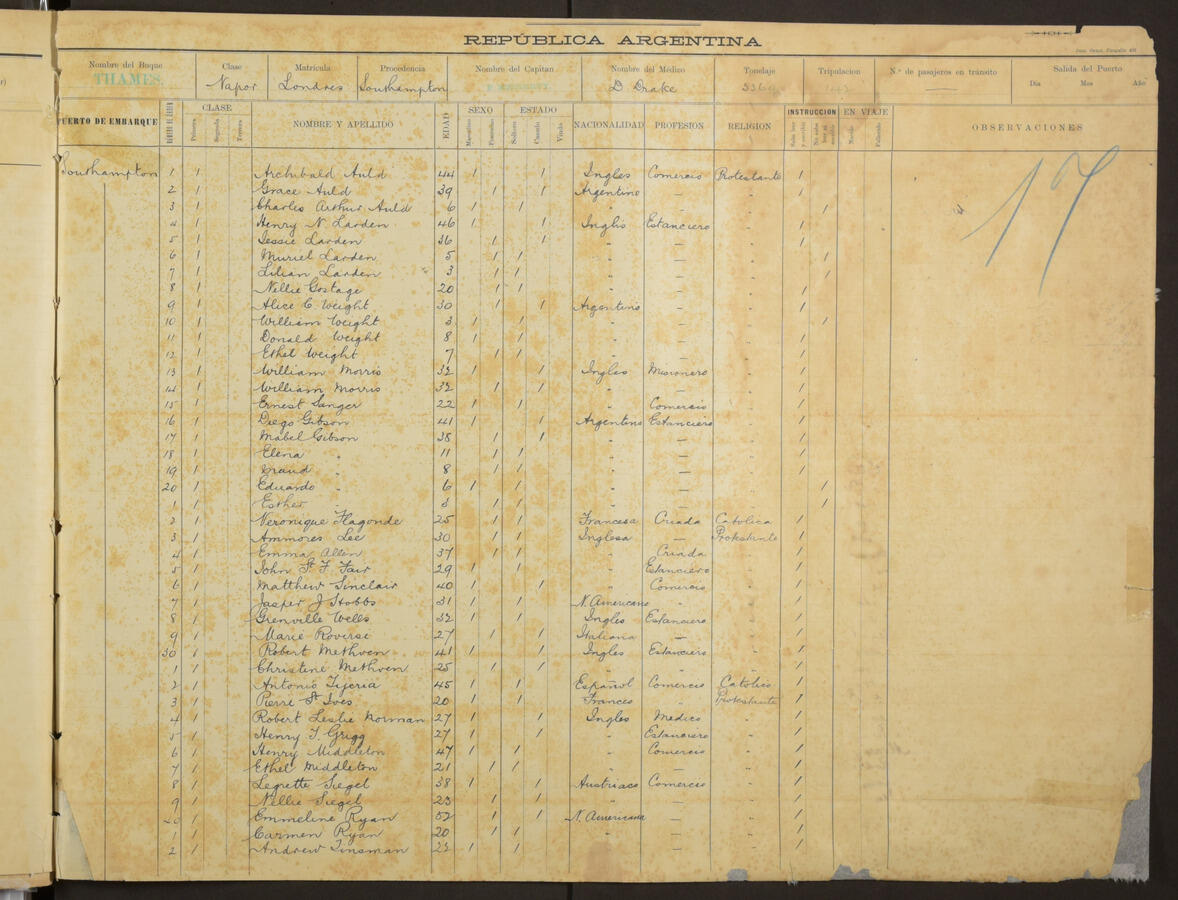 REPÚBLICA ARGENTINA
Nombre del Buque Clase Matrícula Procedencia Nombre del Capitan Nombre del Médico Tonelaje Tripulacion N.º de pasajeros en tránsito Salida del Puerto
THAMES. Vapor Londres Southampton D Drake Dia Mes Año
PUERTO DE EMBARQUE NÚMERO DE ORDEN CLASE NOMBRE Y APELLIDO EDAD SEXO ESTADO NACIONALIDAD PROFESIÓN RELIGION INSTRUCCION EN VIAJE OBSERVACIONES
Primera Segunda Tercera Masculino Femenino Soltero Casado Viudo Sabe leer y escribir No sabe leer ni escribir Nacido Fallecido
Southampton 1 1 Archibald Auld 44 1 1 Ingles Comercio Protestante 1
2 1 Grace Auld 39 1 1 Argentino — " 1
3 1 Charles Arthur Auld 6 1 1 " — " 1
4 1 Henry N. Larden 46 1 1 Inglis Estanciero " 1
5 1 Jessie Larden 36 1 1 " — " 1
6 1 Muriel Larden 5 1 1 " — " 1
7 1 Lilian Larden 3 1 1 " — " 1
8 1 Nellie Gostage 20 1 1 " — " 1
9 1 Alice C. Weight 30 1 1 Argentino — " 1
10 1 William Weight 3 1 1 " — " 1
11 1 Donald Weight 8 1 1 " — " 1
12 1 Ethel Weight 7 1 1 " — " 1
13 1 William Morris 32 1 1 Ingles Misionero " 1
14 1 William Morris 32 1 1 " — " 1
15 1 Ernest Sanger 22 1 1 " Comercio " 1
16 1 Diego Gibson 41 1 1 Argentino Estanciero " 1
17 1 Mabel Gibson 38 1 1 " — " 1
18 1 Elena " 11 1 1 " — " 1
19 1 Maud " 8 1 1 " — " 1
20 1 Eduardo " 6 1 1 " — " 1
1 1 Esther " 1 1 " — " 1
2 1 Veronique Flagonde 25 1 1 Francesa Criada Catolica 1
3 1 Ammores Lee 30 1 1 Inglesa — Protestante 1
4 1 Emma Allen 37 1 1 " Criada " 1
5 1 John St. F. Fair 29 1 1 " Estanciero " 1
6 1 Matthew Sinclair 40 1 1 " Comercio " 1
7 1 Jasper J Hobbs 31 1 1 N. Americano " " 1
8 1 Grenville Wells 32 1 1 Ingles Estanciero " 1
9 1 Marie Roversi 27 1 1 Italiana — " 1
30 1 Robert Methven 41 1 1 Ingles Estanciero " 1
1 1 Christine Methven 25 1 1 " — " 1
2 1 Antonio Tijeria 45 1 1 Español Comercio Catolico 1
3 1 Pierre St Ives 20 1 1 Frances " Protestante 1
4 1 Robert Leslie Norman 27 1 1 Ingles Medico " 1
5 1 Henry T. Grigg 27 1 1 " Estanciero " 1
6 1 Henry Middleton 47 1 1 " Comercio " 1
7 1 Ethel Middleton 21 1 1 " — " 1
8 1 Legrette Siegel 38 1 1 Austriaco Comercio " 1
9 1 Nellie Siegel 23 1 1 " — " 1
1 Emmeline Ryan 52 1 1 N. Americana — " 1
1 1 Carmen Ryan 20 1 1 " — " 1
2 1 Andrew Tinsman 22 1 1 " — " 1